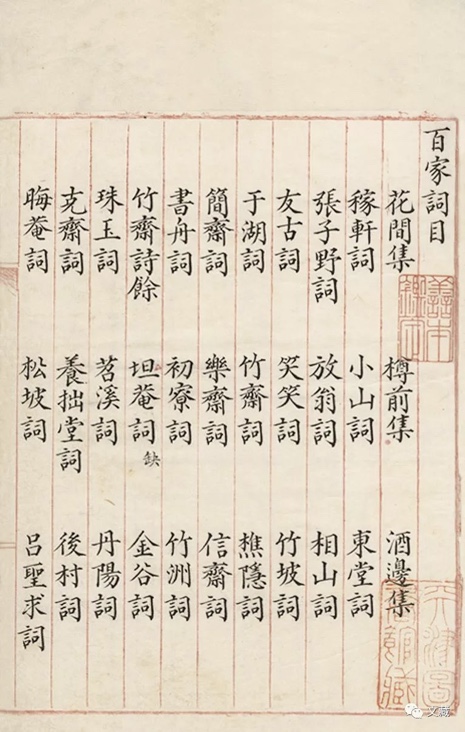 百家詞目
花間集 樽前集 酒邊集
稼軒詞 小山詞 東堂詞
張子野詞 放翁詞 相山詞
友古詞 笑笑詞 竹坡詞
于湖詞 竹齋詞 樵隱詞
簡齋詞 樂齋詞 信齋詞
書舟詞 初寮詞 竹洲詞
竹齋詩餘 坦菴詞缺 金谷詞
珠玉詞 苕溪詞 丹陽詞
克齋詞 養拙堂詞 後村詞
晦菴詞 松坡詞 呂聖求詞
文藏